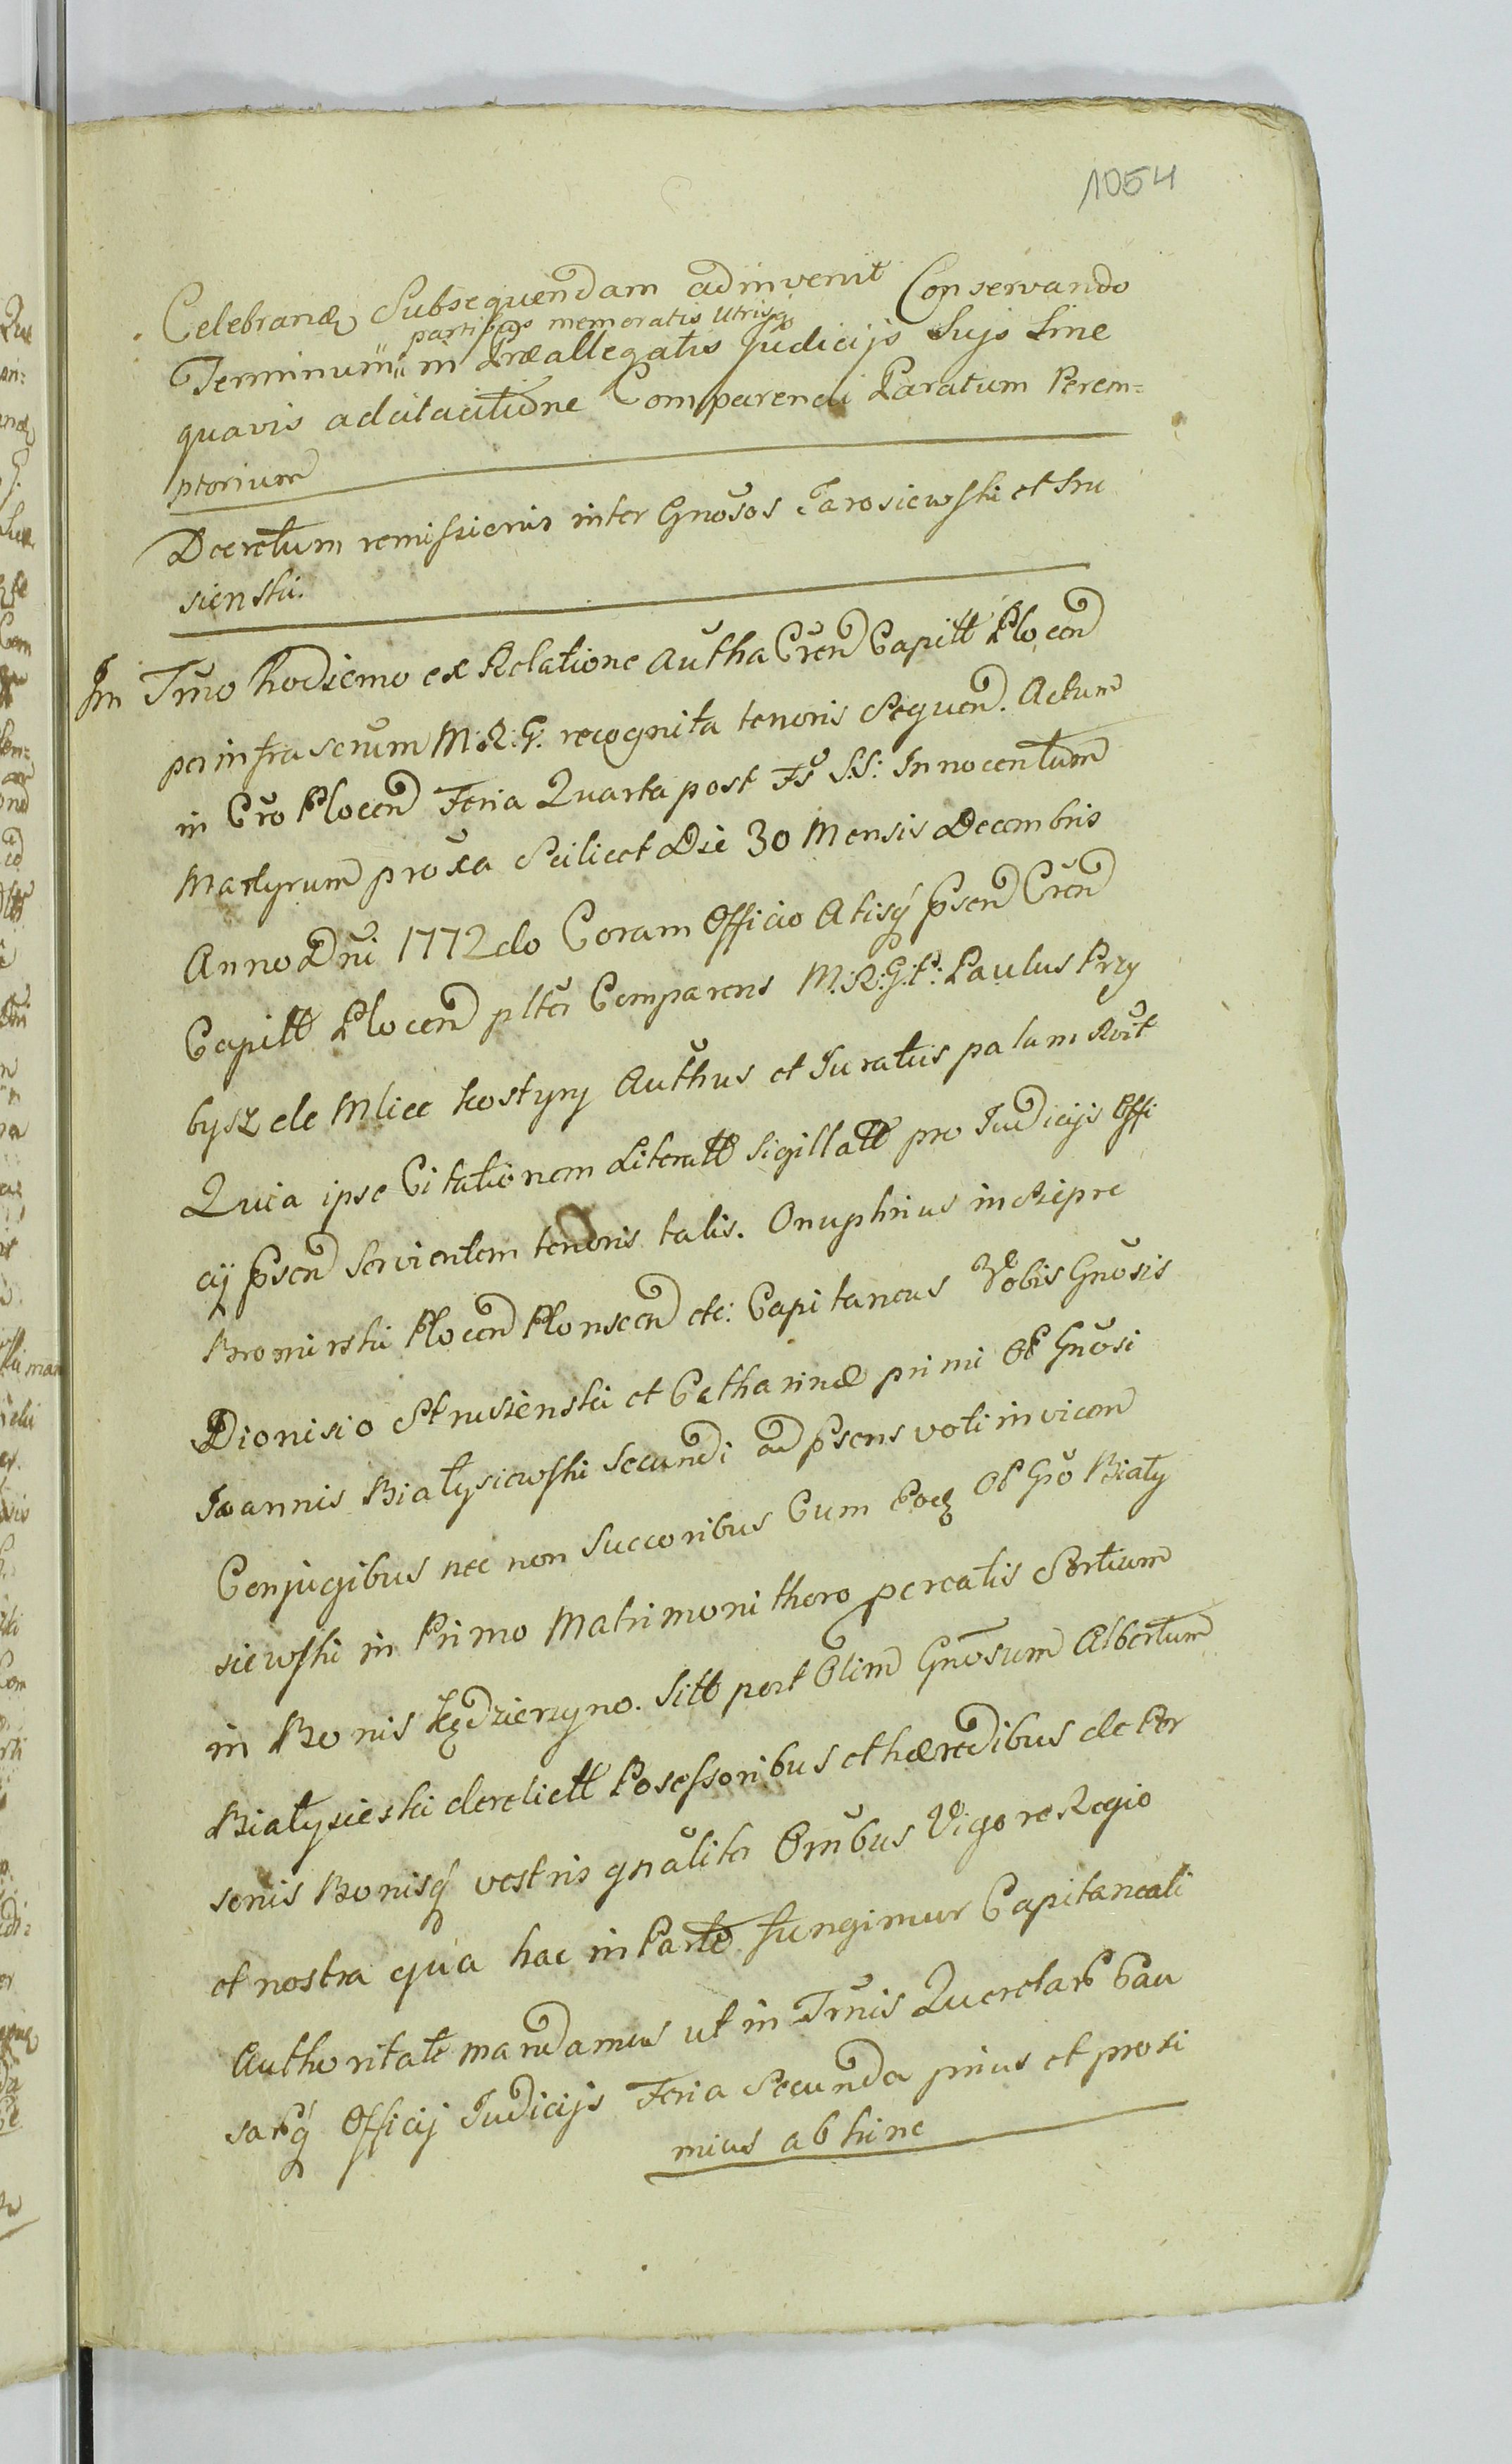 1054
Celebranđ Subsequendam adinvenit Conservando
partibus memoratis utrisq
Terminum in Præallegatis Judicijs Sujs Sine
quavis adcitacitiõne Comparendi Paratum Perem=
ptorium
Decretum remissionis inter Gnõsos Jarosiewski et Stru
sienski.
In Tm̃o hodierno ex Relatione Autha Crẽn Capitt Plocen
per infrascrum M:R:G: recognita tenoris Sequen. Actum
in Crõ Plocen Feria Quarta post Fs̃ S.S: Innocentum
Martyrum proxa Scilicet Die 30 Mensis Decembris
Anno Dn̄i 1772do Coram Officio Atisq P̃sen Crẽn
Capitt Plocen pltẽr Comparens M:R:G:P: Paulus Przy
bysz de Mlice Kostyry Authus et Juratus palam Rõit
Quia ipse Citationem Literatt Sigillatt pro Judicijs Offi
cij P̃sen Servientem tenoris talis. Onuphrius in Siepre
Bromirski Plocen Plonscen etc: Capitaneus Vobis Gnõsis
Dionisio Strusienski et Catharinæ primi Ol Gnõsi
Joannis Białysiewski Secundi ad P̃sens voti invicem
Conjugibus nec non Succoribus Cum Eodq Ol Gsõ Biały
siewski in Primo Matrimoni thoro pcreatis Sortium
in Bonis Kędzierzyno. Sitt post Olim Gnõsum Albertum
Białysieski derelictt Posessoribus et hæredibus de Per
sonis Bonisq vestris gnãliter Om̃bus Vigore Regio
et nostra qua hac in Parte fungimur Capitaneali
Authoritate mandamus ut in Trm̃is Querelarb Cau
sarbq Officij Judicijs Feria Secunda prius et proxi
mius abhinc